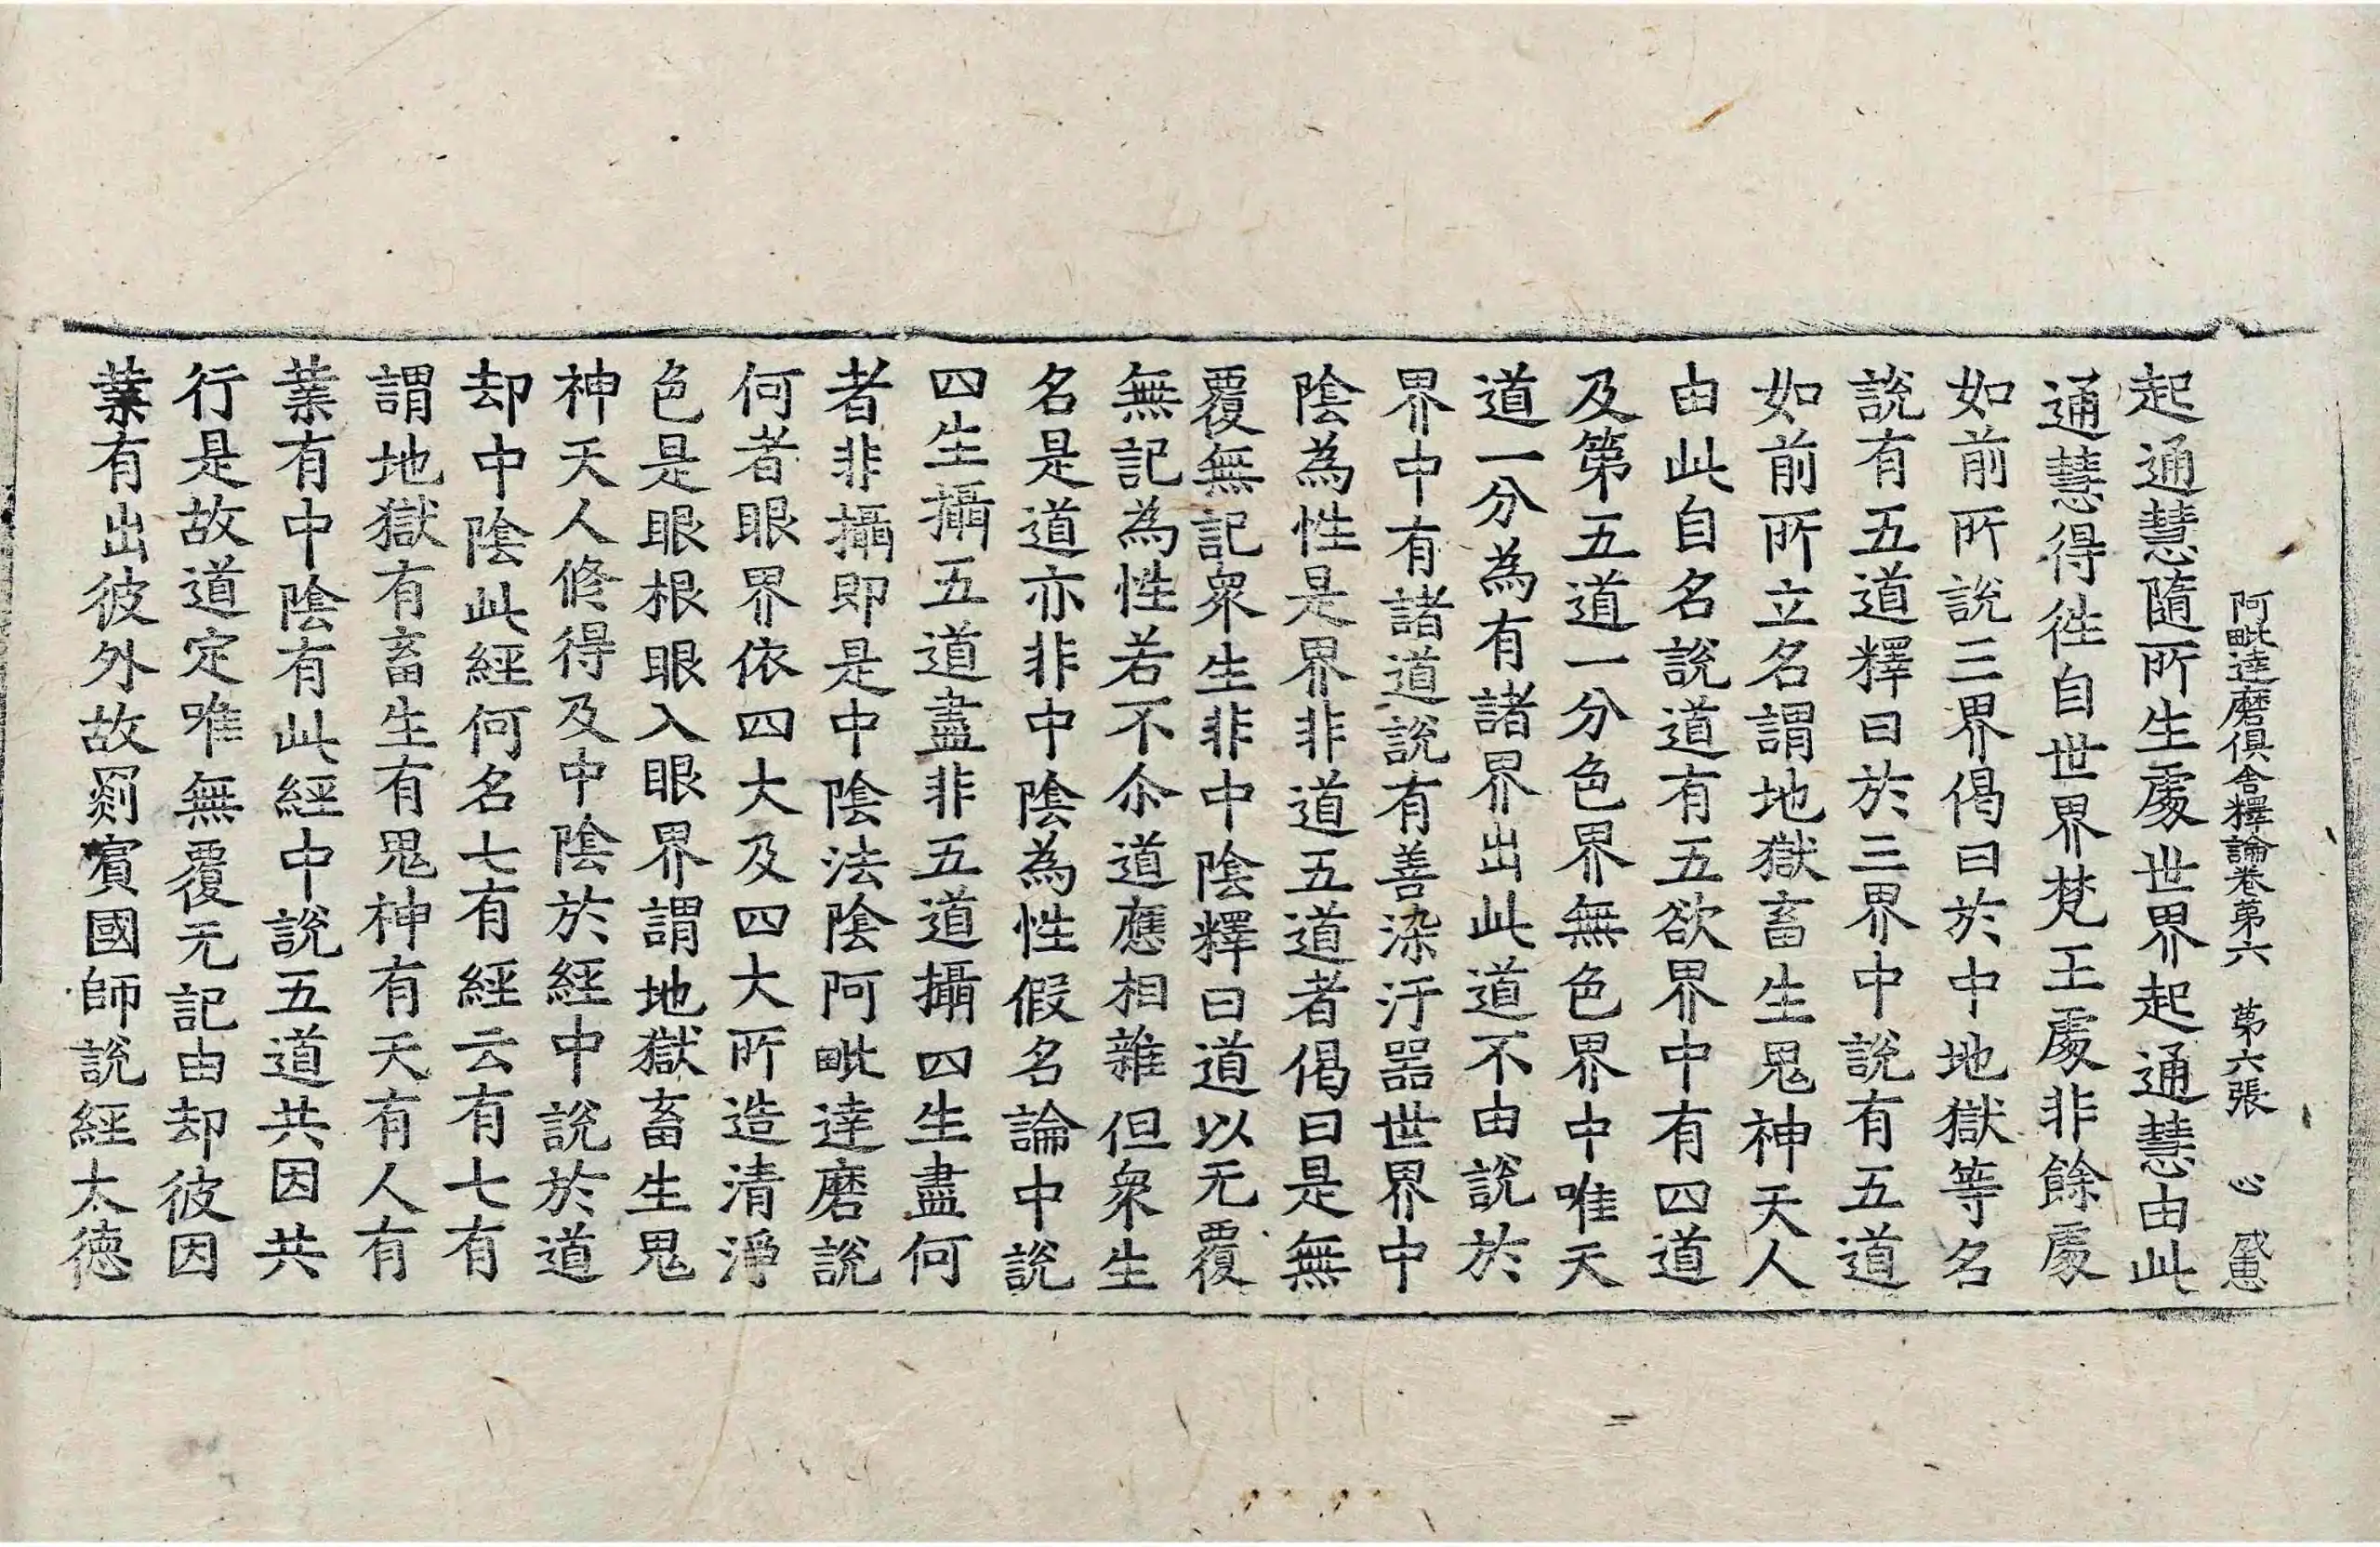 阿毗達磨俱舍釋論卷第六 第六張 心 戚惠
起通慧隨所生處世界起通慧由此
通慧得徃自世界梵王處非餘處
如前所說三界偈曰於中地獄等名
說有五道釋曰於三界中說有五道
如前所立名謂地獄畜生鬼神天人
由此自名說道有五欲界中有四道
及第五道一分色界無色界中唯天
道一分為有諸界出此道不由說於
界中有諸道說有善染汙器世界中
陰為性是界非道五道者偈曰是無
覆無記衆生非中陰釋曰道以无覆
無記為性若不尒道應相雜但衆生
名是道亦非中陰為性假名論中說
四生攝五道盡非五道攝四生盡何
者非攝即是中陰法陰阿毗達磨說
何者眼界依四大及四大所造清淨
色是眼根眼入眼界謂地獄畜生鬼
神天人修得及中陰於經中說於道
却中陰此經何名七有經云有七有
謂地獄有畜生有鬼神有天有人有
業有中陰有此經中說五道共因共
行是故道定唯無覆无記由却彼因
業有出彼外故罽賓國師說經太徳